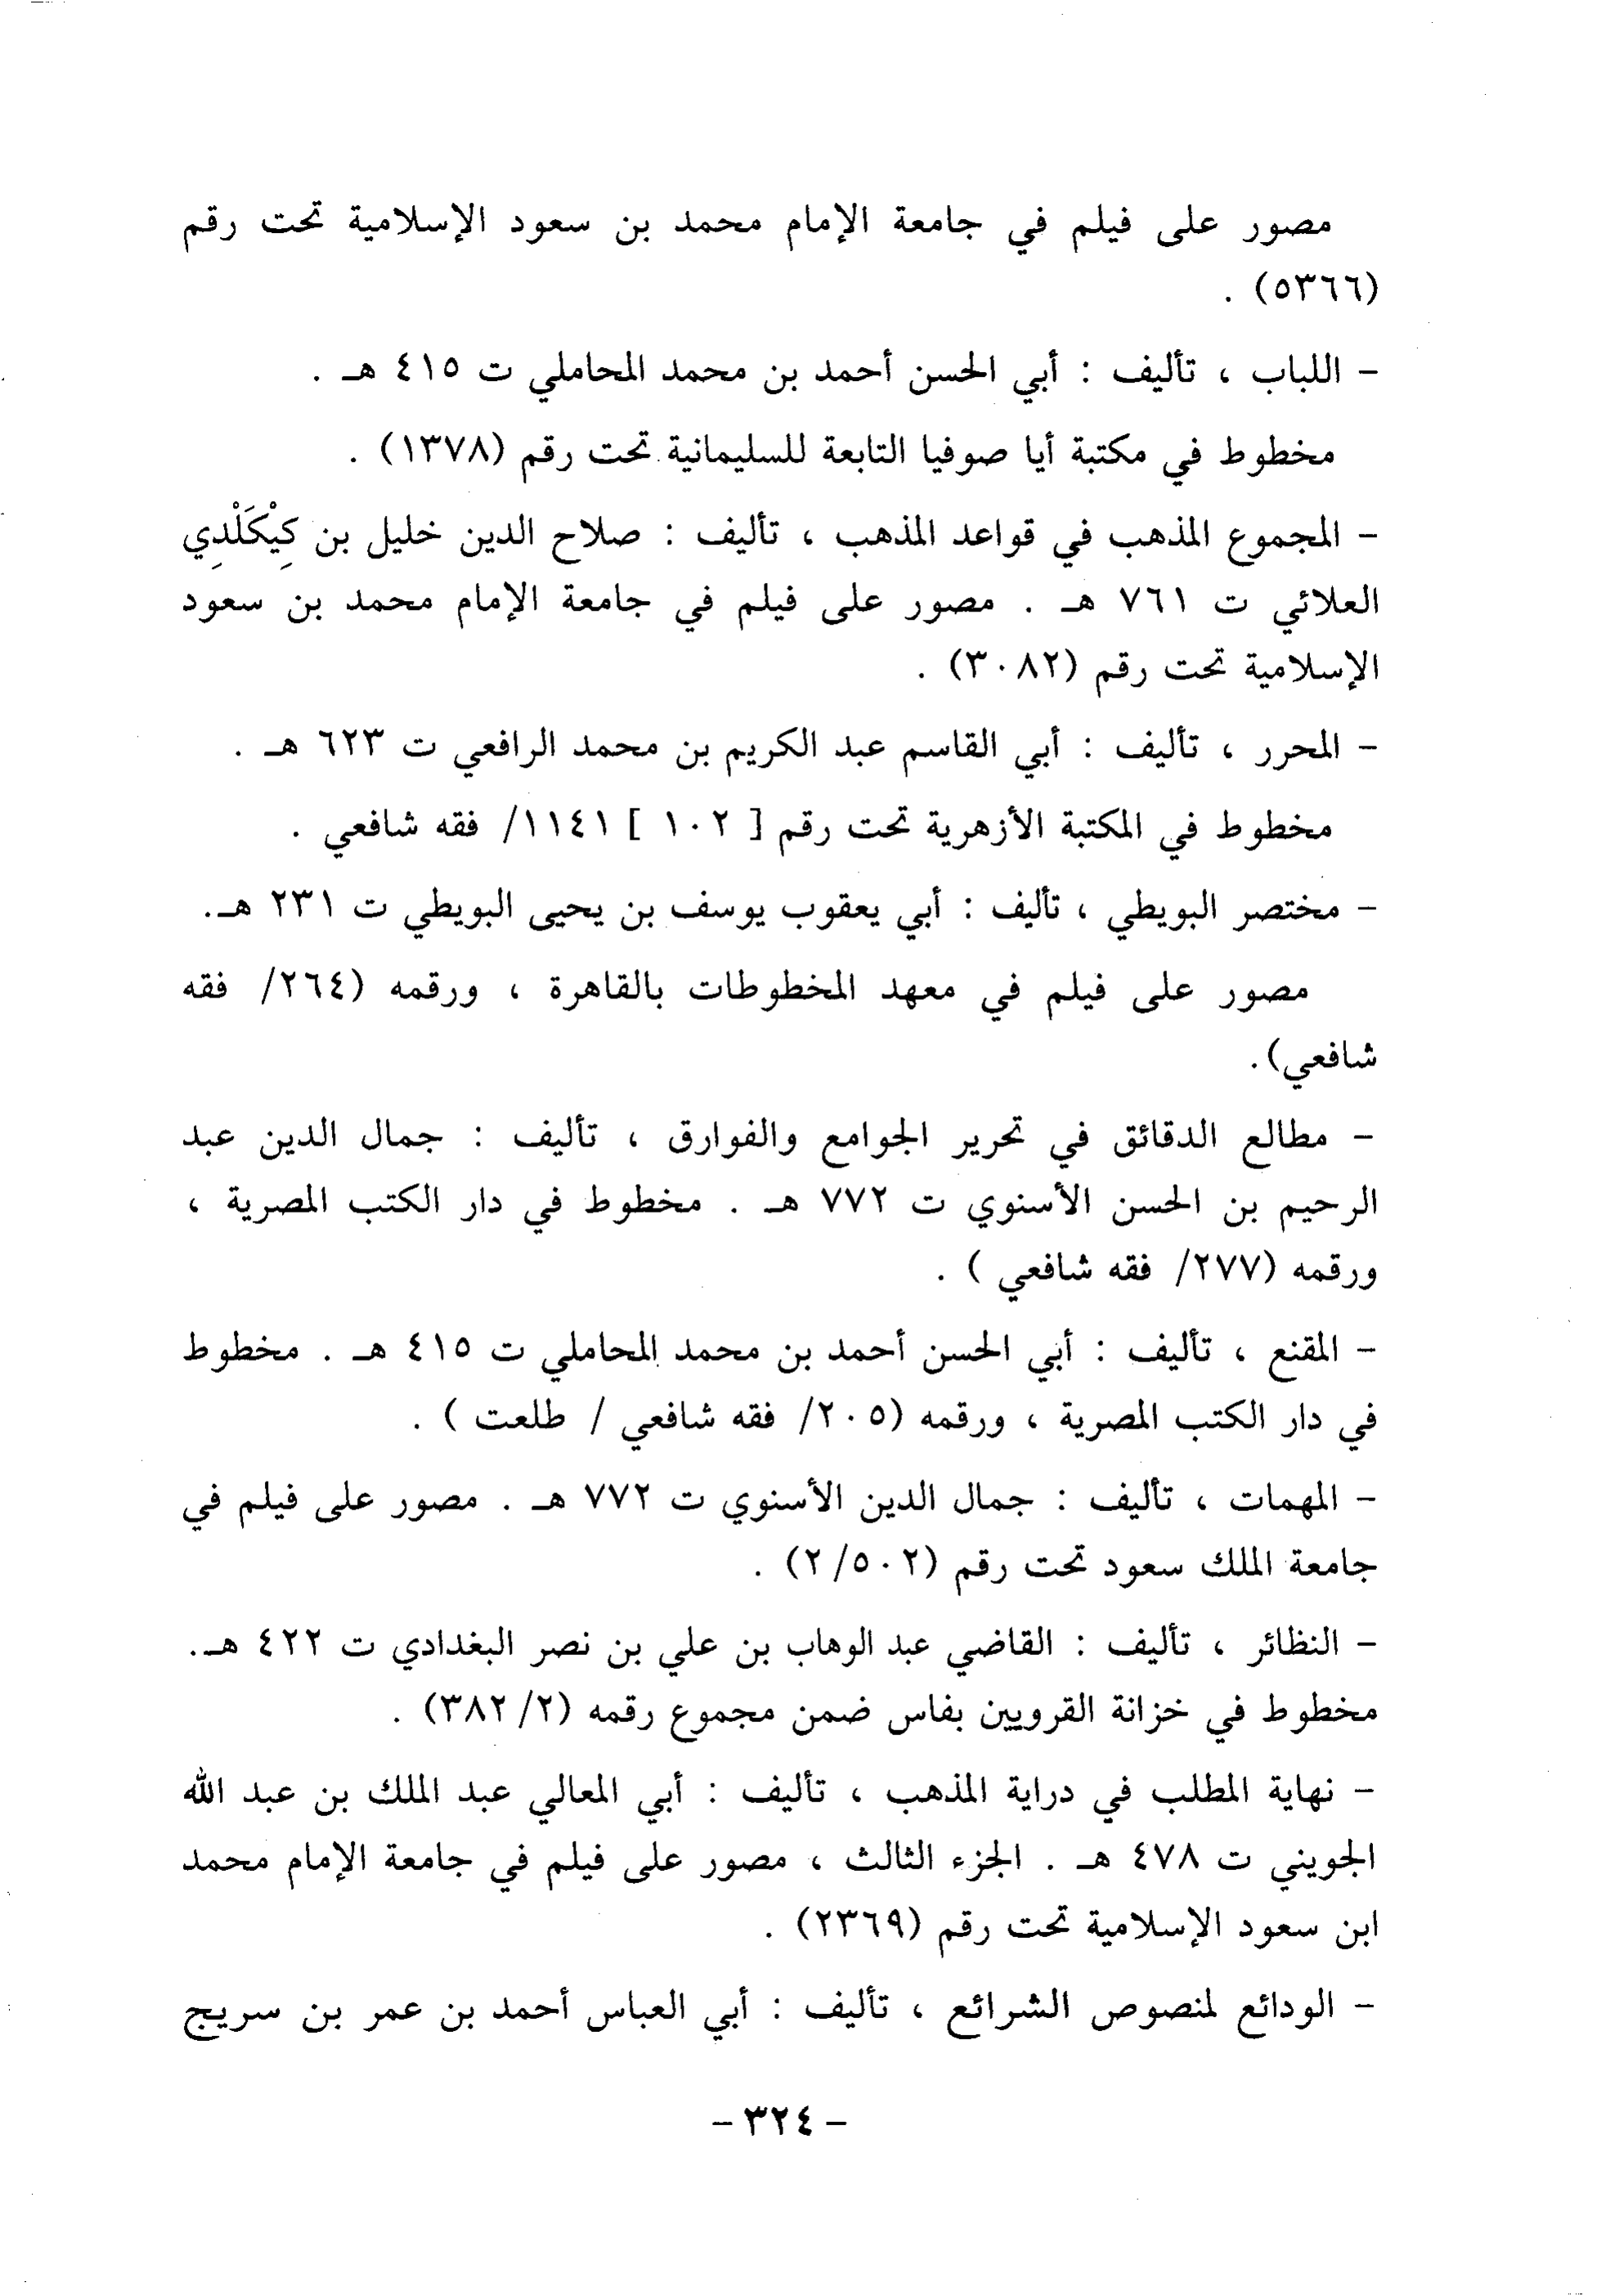 مصور على فيلم في جامعة الإمام محمد بن سعود الإسلامية تحت رقم
(٥٣٦٦) .
- اللباب ، تأليف : أبي الحسن أحمد بن محمد المحاملي ت ٤١٥ هـ .
مخطوط في مكتبة أيا صوفيا التابعة للسليمانية تحت رقم (١٣٧٨) .
- المجموع المذهب في قواعد المذهب ، تأليف : صلاح الدين خليل بن كِيْكَلْدِي
العلائي ت ٧٦١ هـ . مصور على فيلم في جامعة الإمام محمد بن سعود
الإسلامية تحت رقم (٣٠٨٢) .
- المحرر ، تأليف : أبي القاسم عبد الكريم بن محمد الرافعي ت ٦٢٣ هـ .
مخطوط في المكتبة الأزهرية تحت رقم [ ١٠٢ ] ١١٤١/ فقه شافعي .
- مختصر البويطي ، تأليف : أبي يعقوب يوسف بن يحيى البويطي ت ٢٣١ هـ.
مصور على فيلم في معهد المخطوطات بالقاهرة ، ورقمه (٢٦٤/ فقه
شافعي).
- مطالع الدقائق في تحرير الجوامع والفوارق ، تأليف : جمال الدين عبد
الرحيم بن الحسن الأسنوي ت ٧٧٢ هـ . مخطوط في دار الكتب المصرية ،
ورقمه (٢٧٧/ فقه شافعي ) .
- المقنع ، تأليف : أبي الحسن أحمد بن محمد المحاملي ت ٤١٥ هـ . مخطوط
في دار الكتب المصرية ، ورقمه (٢٠٥/ فقه شافعي / طلعت ) .
- المهمات ، تأليف : جمال الدين الأسنوي ت ٧٧٢ هـ . مصور على فيلم في
جامعة الملك سعود تحت رقم (٢/٥٠٢) .
- النظائر ، تأليف : القاضي عبد الوهاب بن علي بن نصر البغدادي ت ٤٢٢ هـ.
مخطوط في خزانة القرويين بفاس ضمن مجموع رقمه (٣٨٢/٢) .
- نهاية المطلب في دراية المذهب ، تأليف : أبي المعالي عبد الملك بن عبد الله
الجويني ت ٤٧٨ هـ . الجزء الثالث ، مصور على فيلم في جامعة الإمام محمد
ابن سعود الإسلامية تحت رقم (٢٣٦٩) .
- الودائع لمنصوص الشرائع ، تأليف : أبي العباس أحمد بن عمر بن سريج
- ٣٢٤ -